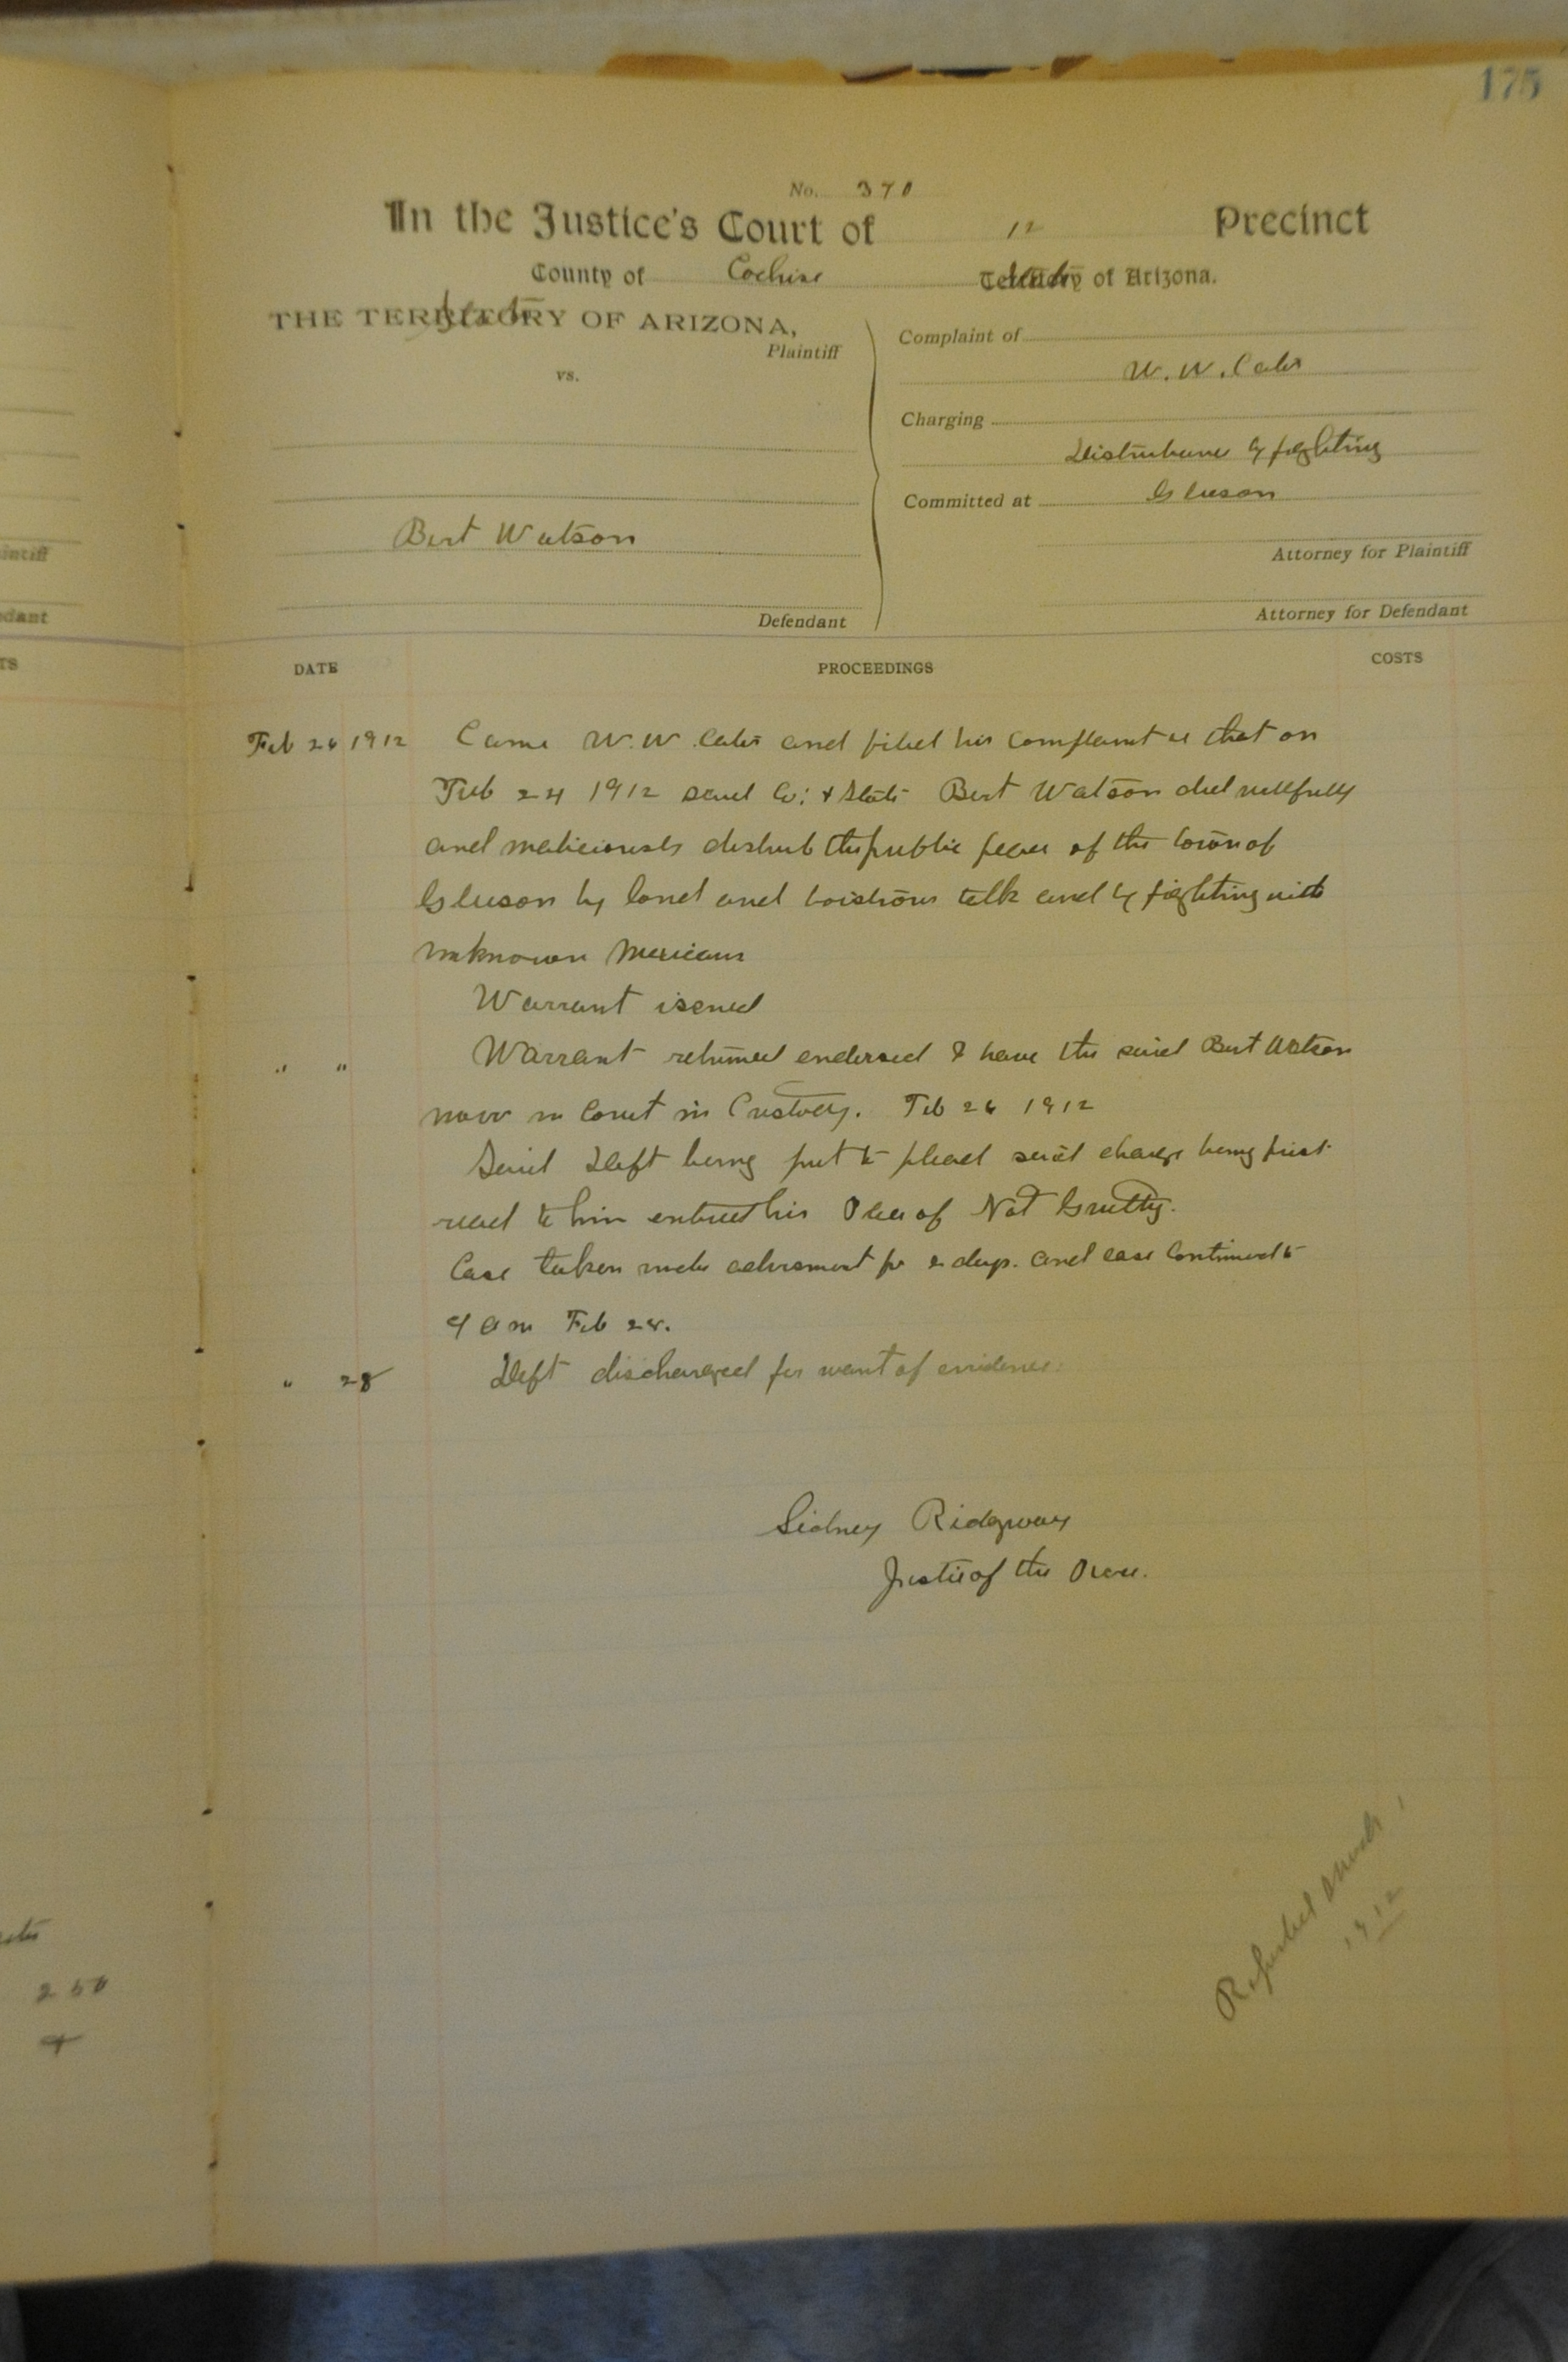 175
No. 370
In the Justice's Court of 12 Precinct
County of Cochise State of Arizona.
THE TERRITORY OF ARIZONA,
State
Plaintiff
vs.
Complaint of
W. W. Cates
Charging
Disturbance by fighting
Committed at Gleeson
Bert Watson
Attorney for Plaintiff
Defendant
Attorney for Defendant
DATE PROCEEDINGS COSTS
Feb 26 1912 Came W. W. Cates and filed his complaint that on
Feb 24 1912 said Co. & State Bert Watson did willfully
and maliciously disturb the public peace of the town of
Gleeson by loud and boistrous talk and by fighting with
unknown Mexicans
Warrant issued
" " Warrant returned endorsed I have the said Bert Watson
now in Court in Custody. Feb 26 1912
Said Deft being put to plead said charge being first
read to him entered his Plea of Not Guilty.
Case taken under advisement for 2 days. and case Continued to
9 am Feb 28.
" 28 Deft discharged for want of evidence.
Sidney Ridgway
Justice of the Peace.
Reported March 1
1912
intiff
dant
TS
250